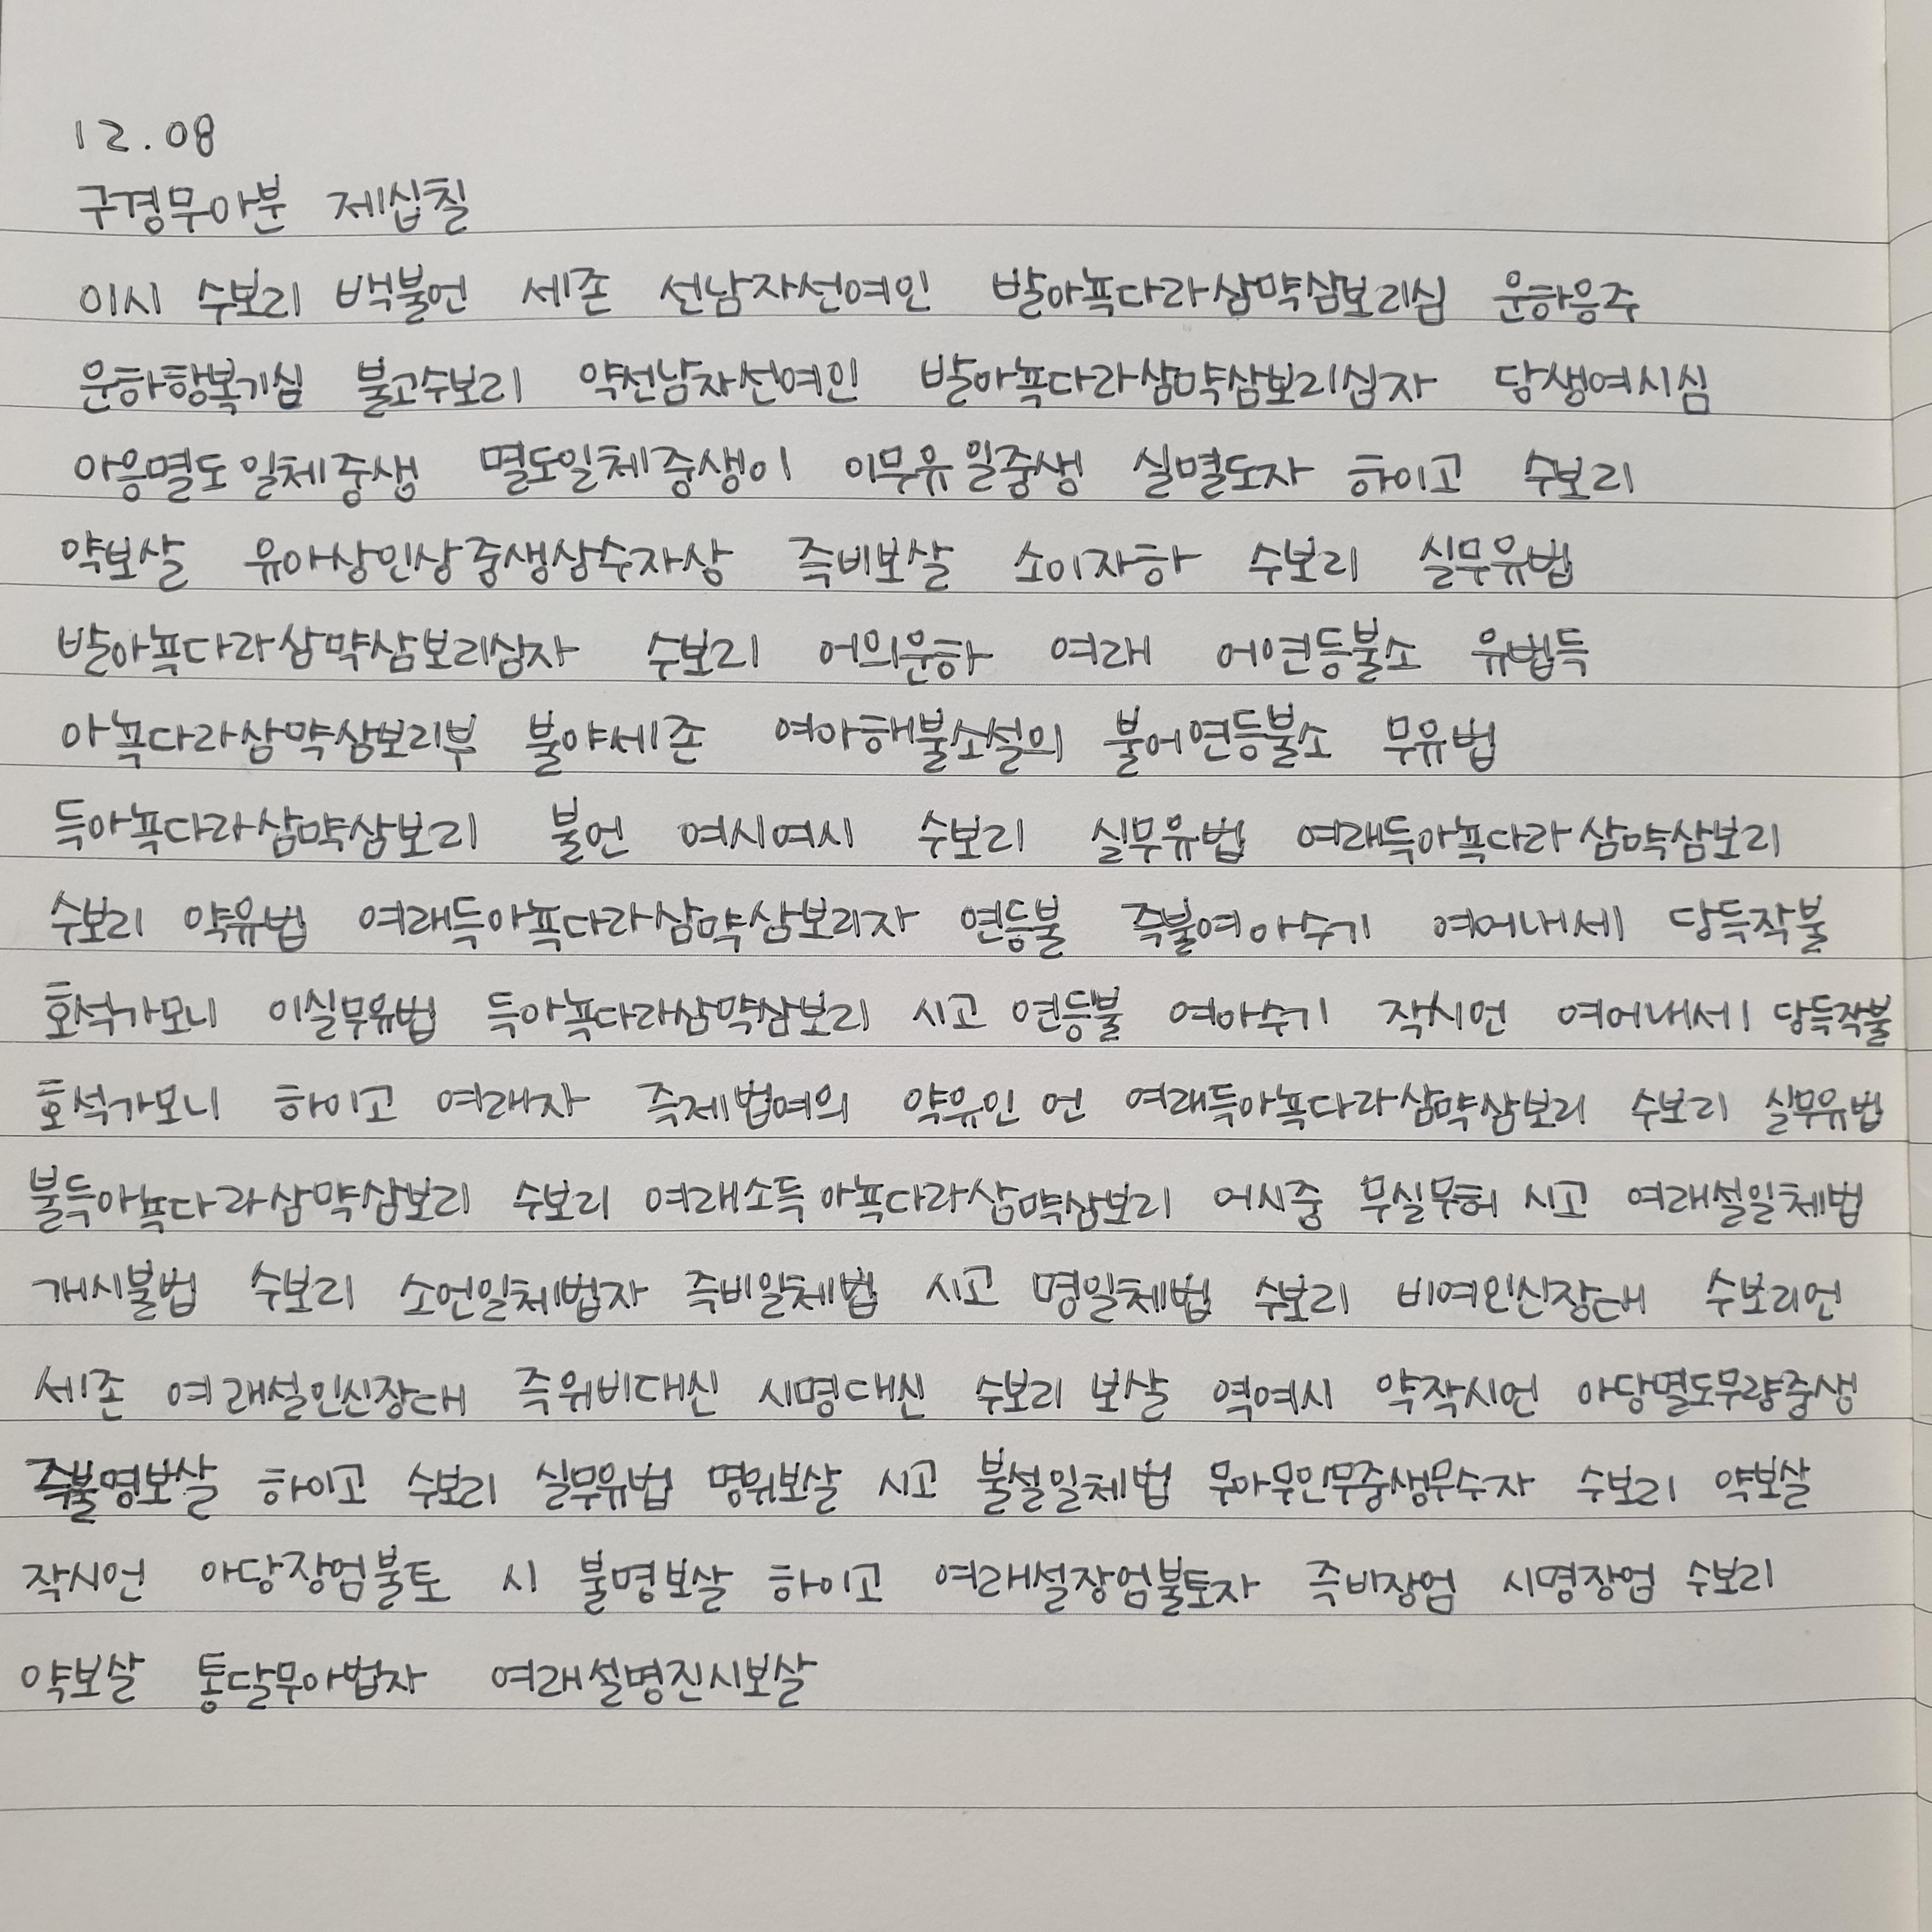 12.08
구경무아분 제십칠
이시 수보리 백불언 세존 선남자선여인 발아뇩다라삼먁삼보리심 운하응주
운하항복기심 불고수보리 약선남자선여인 발아뇩다라삼먁삼보리심자 당생여시심
아응멸도일체중생 멸도일체중생이 이무유일중생 실멸도자 하이고 수보리
약보살 유아상인상중생상수자상 즉비보살 소이자하 수보리 실무유법
발아뇩다라삼먁삼보리심자 수보리 어의운하 여래 어연등불소 유법득
아뇩다라삼먁삼보리부 불야세존 여아해불소설의 불어연등불소 무유법
득아뇩다라삼먁삼보리 불언 여시여시 수보리 실무유법 여래득아뇩다라삼먁삼보리
수보리 약유법 여래득아뇩다라삼먁삼보리자 연등불 즉불여아수기 여어내세 당득작불
호석가모니 이실무유법 득아뇩다라삼먁삼보리 시고 연등불 여아수기 작시언 여어내세 당득작불
호석가모니 하이고 여래자 즉제법여의 약유인 언 여래득아뇩다라삼먁삼보리 수보리 실무유법
불득아뇩다라삼먁삼보리 수보리 여래소득 아뇩다라삼먁삼보리 어시중 무실무허 시고 여래설일체법
개시불법 수보리 소언일체법자 즉비일체법 시고 명일체법 수보리 비여인신장대 수보리언
세존 여래설인신장대 즉위비대신 시명대신 수보리 보살 역여시 약작시언 아당멸도무량중생
즉불명보살 하이고 수보리 실무유법 명위보살 시고 불설일체법 무아무인무중생무수자 수보리 약보살
작시언 아당장엄불토 시 불명보살 하이고 여래설장엄불토자 즉비장엄 시명장엄 수보리
약보살 통달무아법자 여래설명진시보살